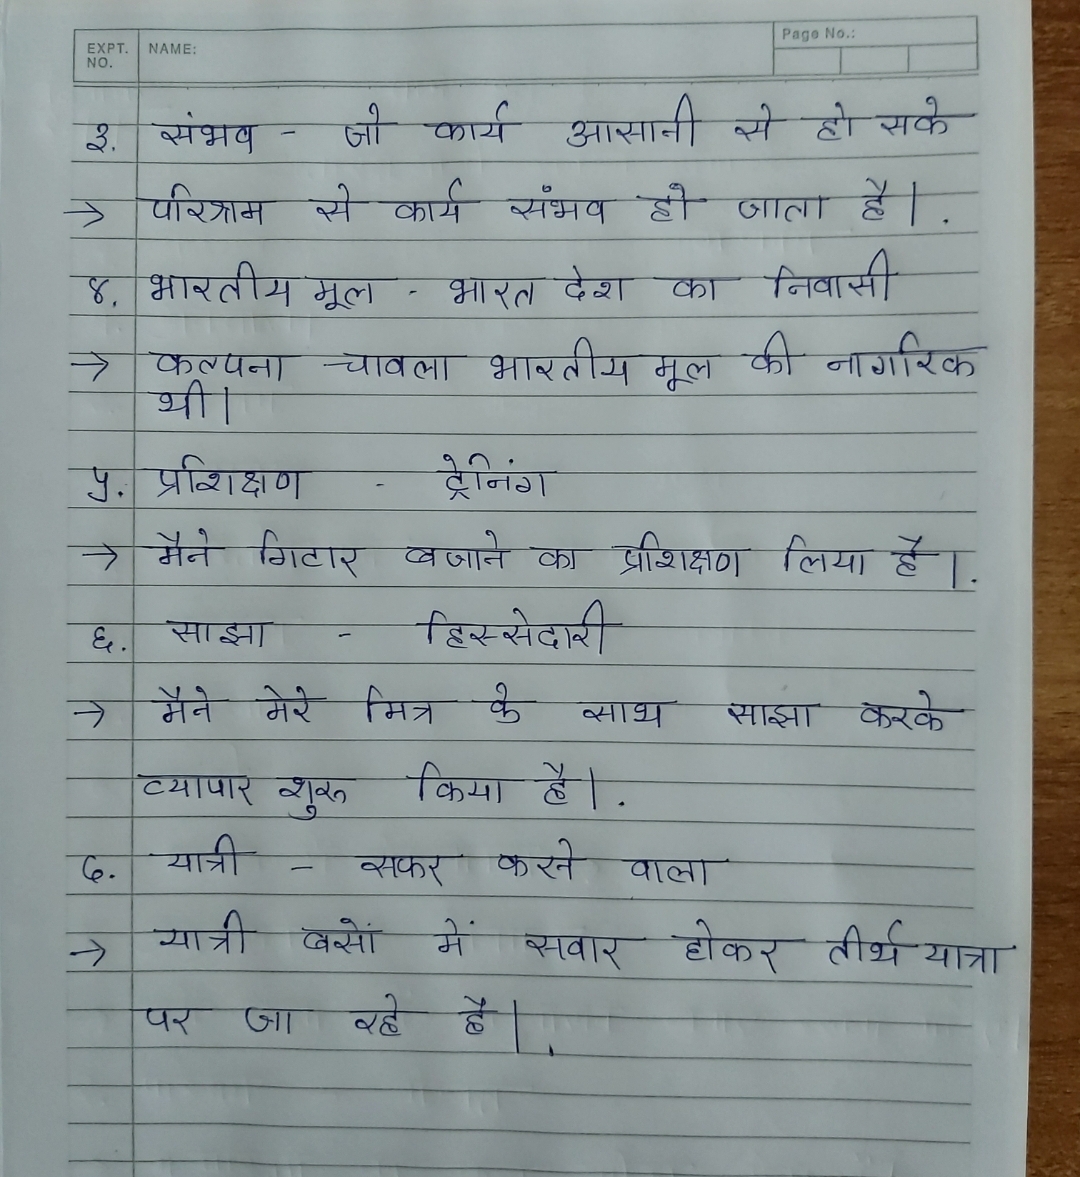 EXPT. NO. NAME: Page No.:
३. संभव - जो कार्य आसानी से हो सके
→ परिश्राम से कार्य संभव हो जाता है|.
४. भारतीय मूल - भारत देश का निवासी
→ कल्पना चावला भारतीय मूल की नागरिक
थी|
५. प्रशिक्षण - ट्रेनिंग
→ मैने गिटार बजाने का प्रशिक्षण लिया है|.
६. साझा - हिस्सेदारी
→ मैने मेरे मित्र के साथ साझा करके
व्यापार शुरू किया है|.
७. यात्री - सफर करने वाला
→ यात्री बसों में सवार होकर तीर्थ यात्रा
पर जा रहे है|.